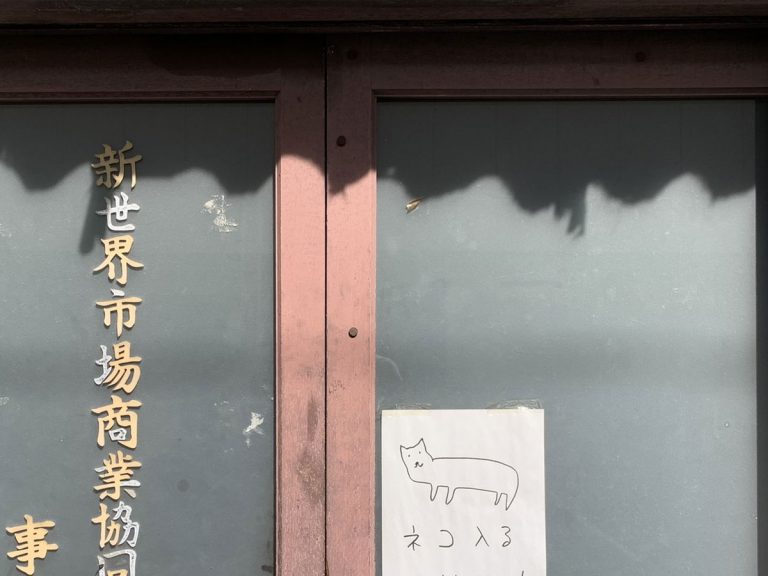 新世界市場商業協同
事
ネコ入る